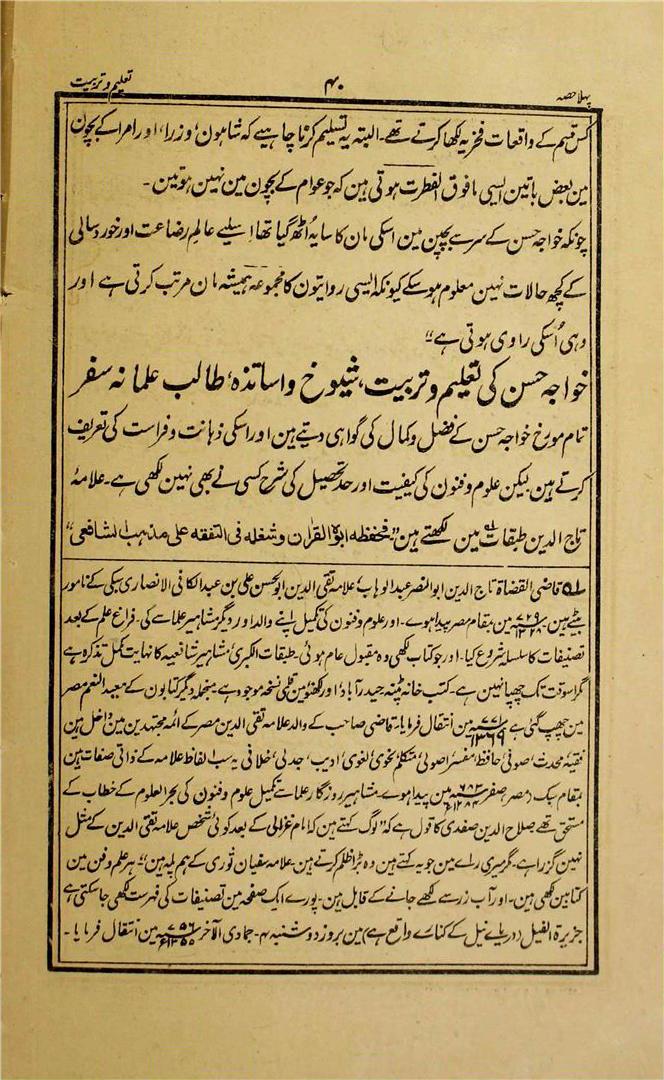 پہلا حصہ ۴۰ تعلیم و تربیت
کس قسم کے واقعات فخریہ لکھا کرتے تھے۔ البتہ یہ تسلیم کرنا چاہیے کہ شاہون، وزرا، اور امرا کے بچون
مین بعض باتین ایسی مافوق الفطرت ہوتی ہین کہ جو عوام کے بچون مین نہین ہوتین۔
چونکہ خواجہ حسن کے سر سے بچپن مین اسکی مان کا سایہ اُٹھ گیا تھا اسلیے عالمِ رضاعت اور خورد سالی
کے کچھ حالات نہین معلوم ہو سکے کیونکہ ایسی روایتون کا مجموعہ ہمیشہ مان مرتب کرتی ہے اور
وہی اُسکی راوی ہوتی ہے"
خواجہ حسن کی تعلیم و تربیت، شیوخ و اساتذہ، طالب علمانہ سفر
تمام مورخ خواجہ حسن کے فضل و کمال کی گواہی دیتے ہین اور اسکی ذہانت و فراست کی تعریف
کرتے ہین لیکن علوم و فنون کی کیفیت اور حد تحصیل کی شرح کسی نے بھی نہین لکھی ہے۔ علامۂ
تاج الدین طبقات مین لکھتے ہین "فحفظه ابوه القرآن وشغله فی التفقه علی مذهب الشافعی"
۵۱ قاضی القضاۃ تاج الدین ابوالنصر عبدالوہاب، علامہ تقی الدین ابوالحسن علی بن عبدالکافی الانصاری سبکی کے نامور
بیٹے ہین ۷۲۹ھ ۱۳۲۸ء مین بمقام مصر پیدا ہوے۔ اور علوم و فنون کی تکمیل اپنے والد اور دیگر مشاہیر علما سے کی۔ فراغ علم کے بعد
تصنیفات کا سلسلہ شروع کیا۔ اور جو کتاب لکھی وہ مقبول عام ہوئی۔ طبقات الکبریٰ، مشاہیر شافعیہ کا نہایت مکمل تذکرہ ہے
مگر اسوقت تک چھپا نہین ہے۔ کتب خانہ پٹنہ حیدرآباد، اور لکھنؤ مین قلمی نسخہ موجود ہے۔ منجملہ دیگر کتابون کے معید النعم مصر
مین چھپ گئی ہے ۷۷۱ھ ۱۳۶۹ء مین انتقال فرمایا۔ قاضی صاحب کے والد علامہ تقی الدین مصر کے ائمہ مجتہدین مین داخل ہین
فقیہ، محدث، صوفی، حافظ، مفسر، اصولی، متکلم، نحوی، لغوی، ادیب، جدلی، خلافی یہ سب الفاظ علامہ کے ذاتی صفات ہین
بمقام سبک (مصر) صفر ۶۸۳ھ ۱۲۸۴ء مین پیدا ہوے۔ مشاہیر روزگار علما سے تکمیل علوم و فنون کی بحر العلوم کے خطاب کے
مستحق تھے صلاح الدین صفدی کا قول ہے کہ "لوگ کہتے ہین کہ امام غزالی کے بعد کوئی شخص علامہ تقی الدین کے مثل
نہین گزرا ہے۔ مگر میری راے مین جو یہ کہتے ہین وہ بڑا ظلم کرتے ہین۔ علامہ سفیان ثوری کے ہم پلہ ہین"۔ ہر علم و فن مین
کتابین لکھی ہین۔ اور آب زر سے لکھے جانے کے قابل ہین۔ پورے ایک صفحہ مین تصنیفات کی فہرست لکھی جا سکتی ہے
جزیرۃ الفیل (دریاے نیل کے کنارے واقع ہے) مین بروز دوشنبہ ۴۔ جمادی الآخر ۷۵۶ھ ۱۳۵۵ء مین انتقال فرمایا۔